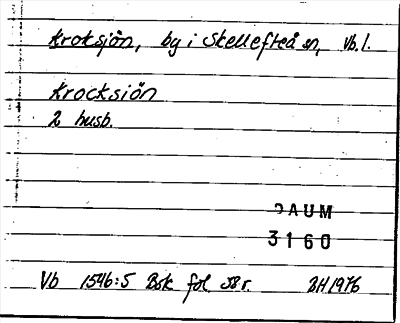 Kroksjön, by i Skellefteå sn, Vb.l.
Krocksiön
2 husb.
DAUM
3160
Vb 1546:5 Bsk fol 58 r. BH 1976